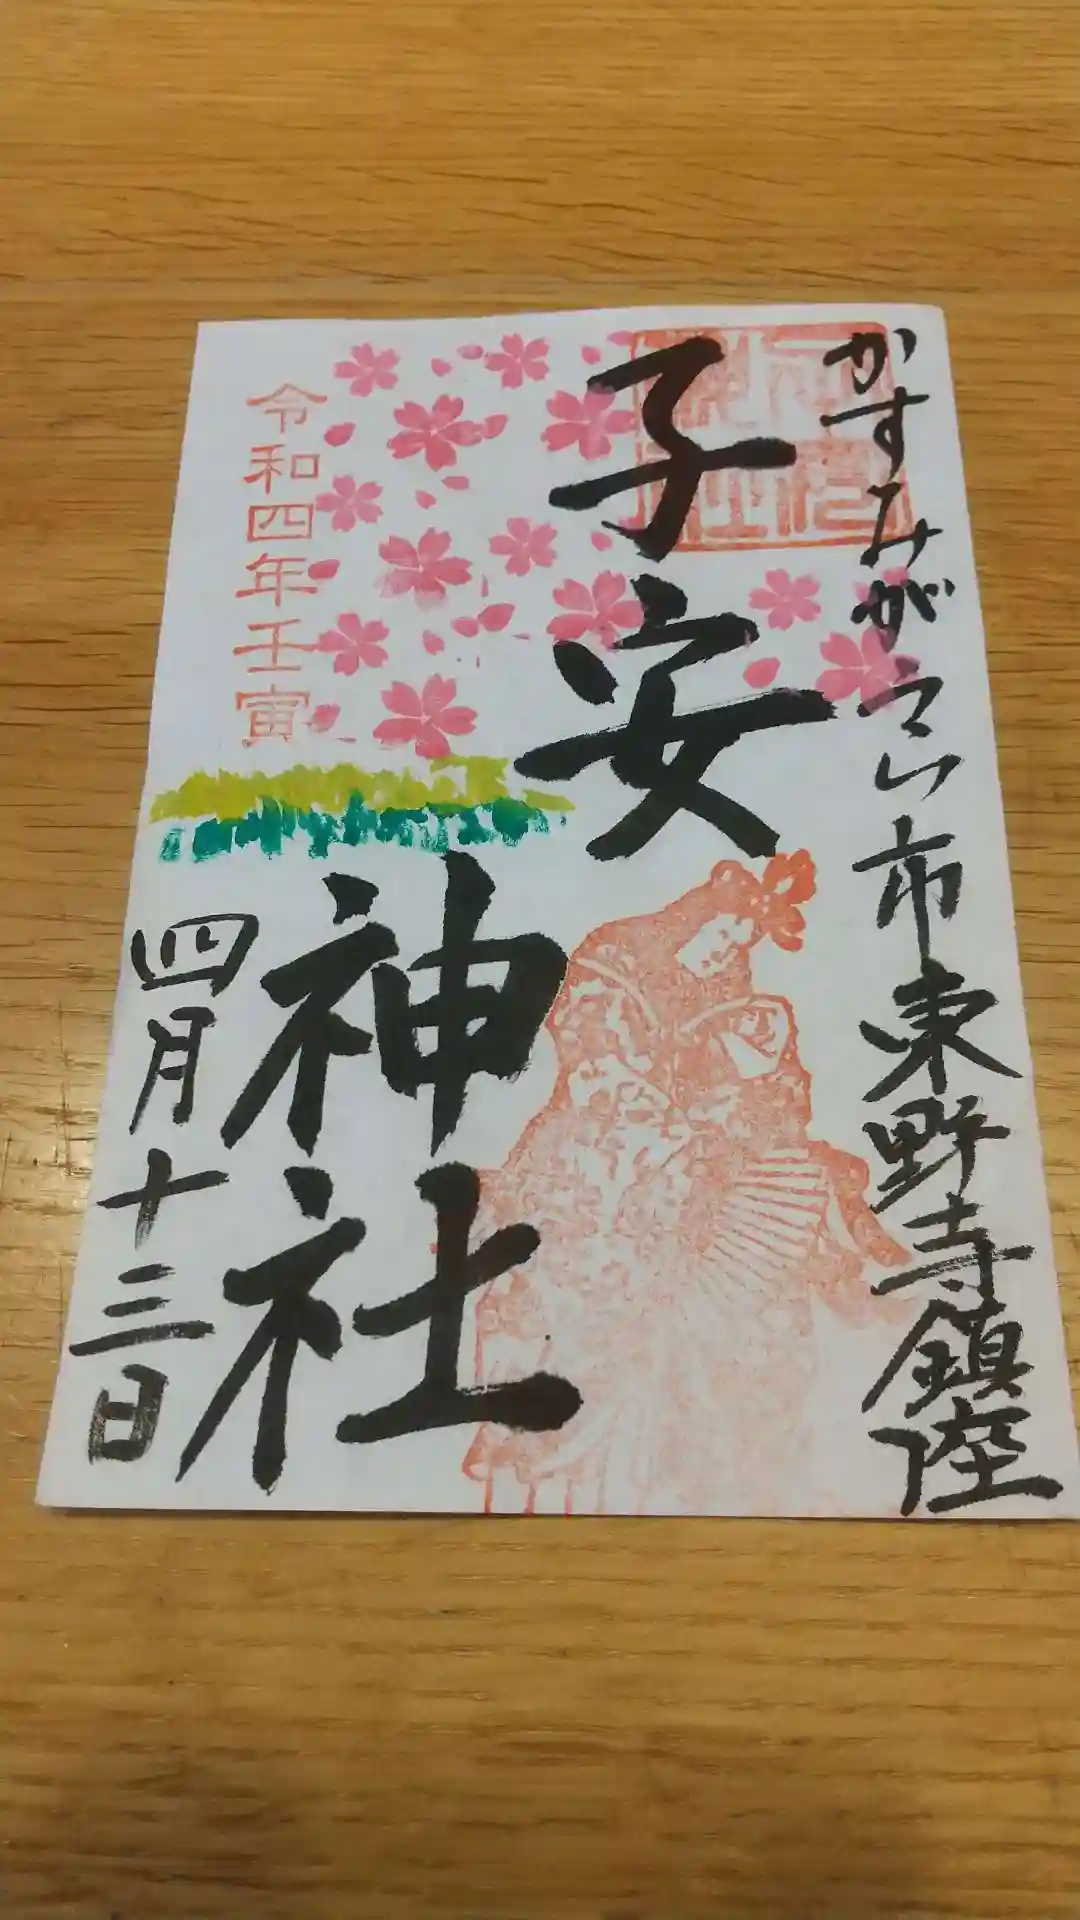 かすみがうら市東野寺鎮座
子安
神社
令和四年壬寅
四月十三日